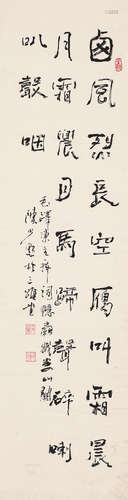 西風烈長空鴈叫霜晨
月霜晨月馬蹄聲碎喇
叭聲咽
毛澤東主席詞憶秦娥婁山關
陳少於三堂